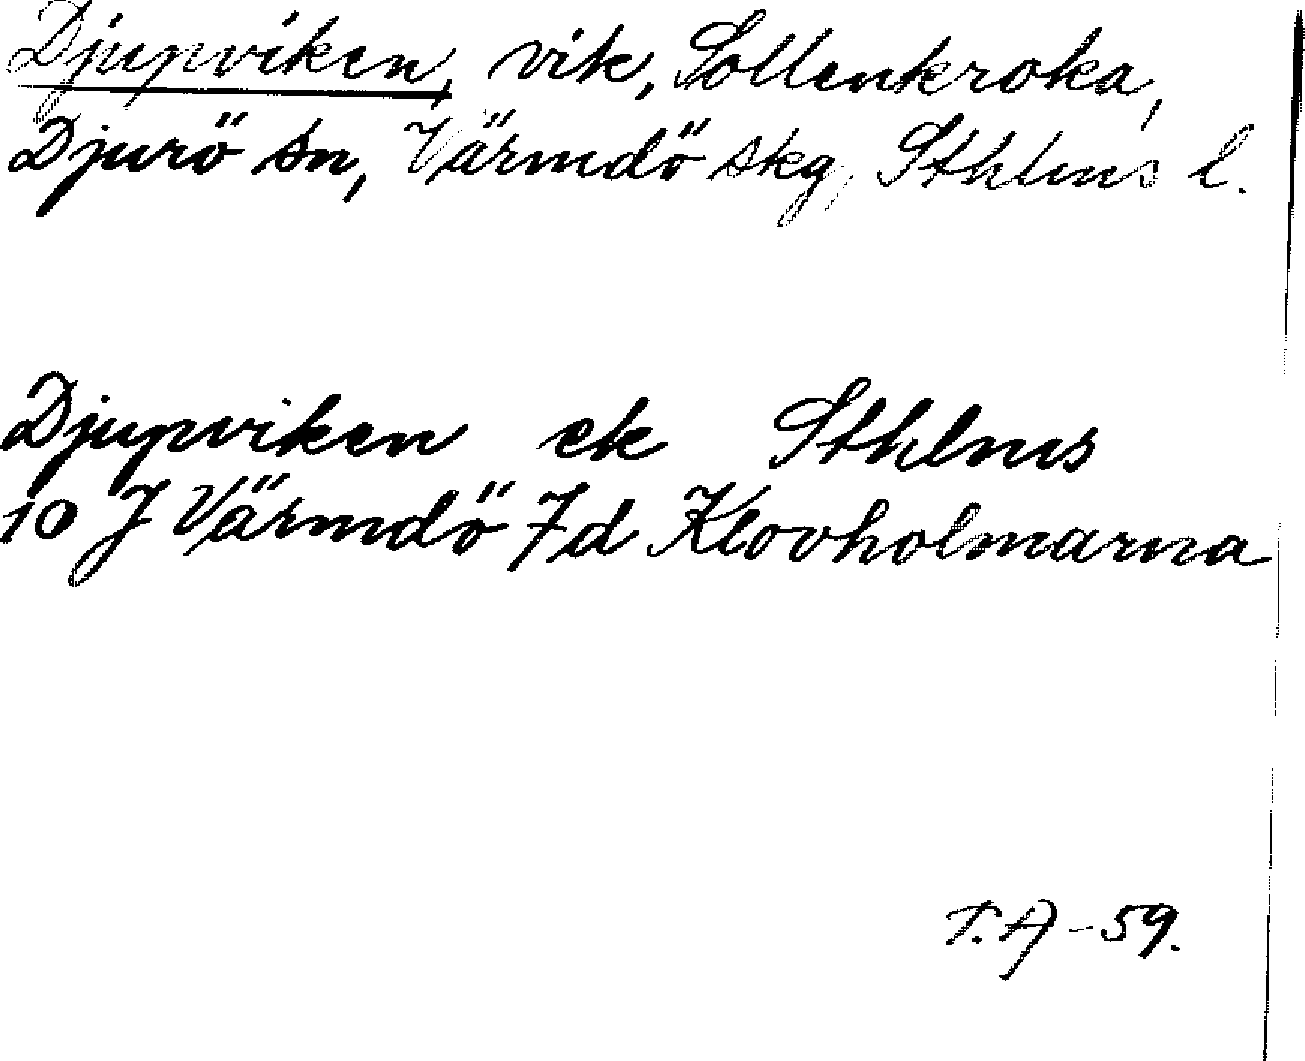 Djupviken, vik, Sollenkroka,
Djurö sn, Värmdö skg, Sthlms l.
Djupviken ek Sthlms
10 J Värmdö 7d Klovholmarna
T.A -59.